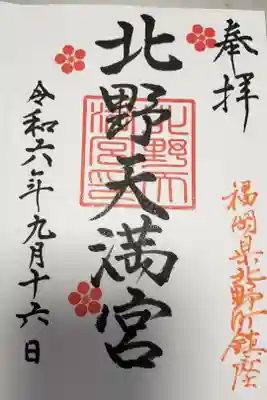 奉拝
福岡県北野町鎮座
北野天満宮
令和六年九月十六日